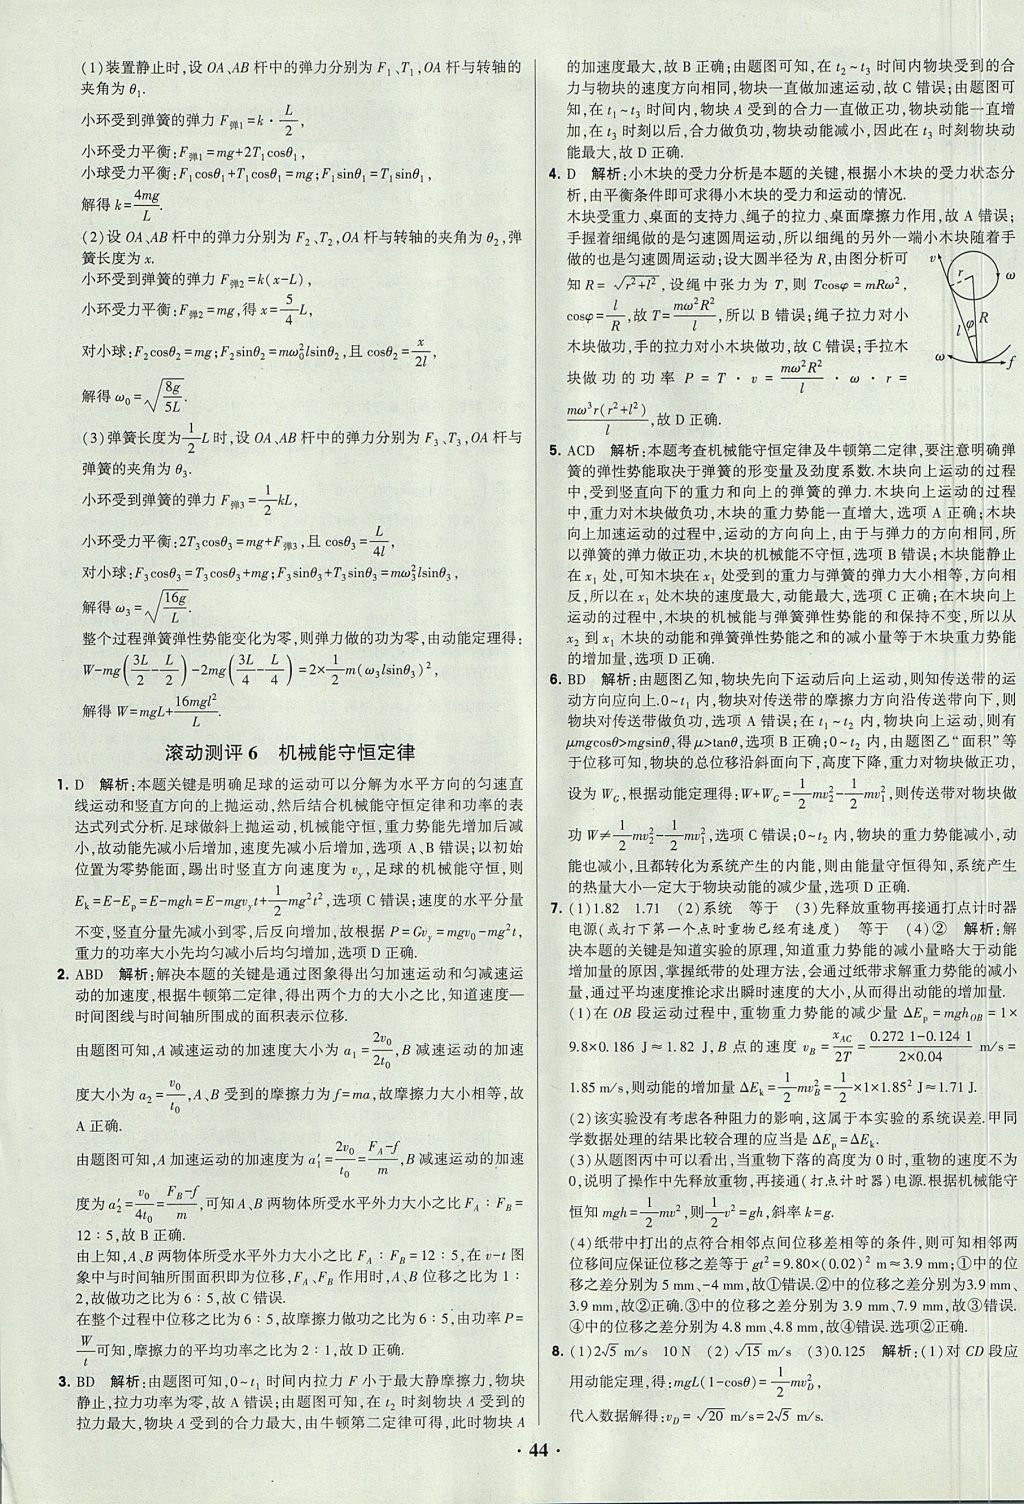 (1)装置静止时,设OA、AB杆中的弹力分别为F₁、T₁,OA杆与转轴的
夹角为θ₁.
小环受到弹簧的弹力F弹₁=k·L/2,
小环受力平衡:F弹₁=mg+2T₁cosθ₁,
小球受力平衡:F₁cosθ₁+T₁cosθ₁=mg;F₁sinθ₁=T₁sinθ₁,
解得k=4mg/L.
(2)设OA、AB杆中的弹力分别为F₂、T₂,OA杆与转轴的夹角为θ₂,弹
簧长度为x.
小环受到弹簧的弹力F弹₂=k(x-L),
小环受力平衡:F弹₂=mg,得x=5/4L,
对小球:F₂cosθ₂=mg;F₂sinθ₂=mω₀²lsinθ₂,且cosθ₂=x/2l,
解得ω₀=√(8g/5L).
(3)弹簧长度为1/2L时,设OA、AB杆中的弹力分别为F₃、T₃,OA杆与
弹簧的夹角为θ₃.
小环受到弹簧的弹力F弹₃=1/2kL,
小环受力平衡:2T₃cosθ₃=mg+F弹₃,且cosθ₃=L/4l,
对小球:F₃cosθ₃=T₃cosθ₃+mg;F₃sinθ₃+T₃sinθ₃=mω₃²lsinθ₃,
解得ω₃=√(16g/L).
整个过程弹簧弹性势能变化为零,则弹力做的功为零,由动能定理得:
W-mg(3L/2-L/2)-2mg(3L/4-L/4)=2×1/2m(ω₃lsinθ₃)²,
解得W=mgL+16mgl²/L.
滚动测评6 机械能守恒定律
1. D 解析:本题关键是明确足球的运动可以分解为水平方向的匀速直
线运动和竖直方向的上抛运动,然后结合机械能守恒定律和功率的表
达式列式分析.足球做斜上抛运动,机械能守恒,重力势能先增加后减
小,故动能先减小后增加,速度先减小后增加,选项A、B错误;以初始
位置为零势能面,踢出时竖直方向速度为vy,足球的机械能守恒,则
Ek=E-Ep=E-mgh=E-mgvyt+1/2mg²t²,选项C错误;速度的水平分量
不变,竖直分量先减小到零,后反向增加,故根据P=Gvy=mgv₀-mg²t,
重力的功率大小先均匀减小后均匀增加,选项D正确.
2. ABD 解析:解决本题的关键是通过图象得出匀加速运动和匀减速运
动的加速度,根据牛顿第二定律,得出两个力的大小之比,知道速度—
时间图线与时间轴所围成的面积表示位移.
由题图可知,A减速运动的加速度大小为a₁=2v₀/2t₀,B减速运动的加速
度大小为a₂=v₀/t₀,A、B受到的摩擦力为f=ma,故摩擦力大小相等,故
A正确.
由题图可知,A加速运动的加速度为a₁′=2v₀/t₀=(FA-f)/m,B减速运动的加速
度为a₂′=v₀/4t₀=(FB-f)/m,可知A、B两物体所受水平外力大小之比FA∶FB=
12∶5,故B正确.
由上知,A、B两物体所受水平外力大小之比FA∶FB=12∶5,在v-t图
象中与时间轴所围面积即为位移,FA、FB作用时,A、B位移之比为1∶
2,故做功之比为6∶5,故C错误.
在整个过程中位移之比为6∶5,故摩擦力做功之比为6∶5,由功率P=
W/t可知,摩擦力的平均功率之比为2∶1,故D正确.
3. BD 解析:由题图可知,0~t₁时间内拉力F小于最大静摩擦力,物块
静止,拉力功率为零,故A错误;由题图可知,在t₂时刻物块A受到的
拉力最大,物块A受到的合力最大,由牛顿第二定律可得,此时物块A
的加速度最大,故B正确;由题图可知,在t₂~t₃时间内物块受到的合
力与物块的速度方向相同,物块一直做加速运动,故C错误;由题图可
知,在t₁~t₃时间内,物块A受到的合力一直做正功,物块动能一直增
加,在t₃时刻以后,合力做负功,物块动能减小,因此在t₃时刻物块动
能最大,故D正确.
4. D 解析:小木块的受力分析是本题的关键,根据小木块的受力状态分
析,由平衡条件即可求得小木块的受力和运动的情况.
木块受重力、桌面的支持力、绳子的拉力、桌面摩擦力作用,故A错误;
手握着细绳做的是匀速圆周运动,所以细绳的另外一端小木块随着手
做的也是匀速圆周运动;设大圆半径为R,由图分析可
知R=√(r²+l²),设绳中张力为T,则Tcosφ=mRω²,
cosφ=l/R,故T=mω²R²/l,所以B错误;绳子拉力对小
木块做功,手的拉力对小木块做功,故C错误;手拉木
块做功的功率P=T·v=mω²R²/l·ω·r=
mω³r(r²+l²)/l,故D正确.
v r ω l φ R ω f
5. ACD 解析:本题考查机械能守恒定律及牛顿第二定律,要注意明确弹
簧的弹性势能取决于弹簧的形变量及劲度系数.木块向上运动的过程
中,受到竖直向下的重力和向上的弹簧的弹力.木块向上运动的过程
中,重力对木块做负功,木块的重力势能一直增大,选项A正确;木块
向上加速运动的过程中,运动的方向向上,由于与弹力的方向相同,所
以弹簧的弹力做正功,木块的机械能不守恒,选项B错误;木块能静止
在x₁处,可知木块在x₁处受到的重力与弹簧的弹力大小相等,方向相
反,所以在x₁处木块的速度最大,动能最大,选项C正确;在木块向上
运动的过程中,木块的机械能与弹簧弹性势能的和保持不变,所以从
x₂到x₁木块的动能和弹簧弹性势能之和的减小量等于木块重力势能
的增加量,选项D正确.
6. BD 解析:由题图乙知,物块先向下运动后向上运动,则知传送带的运
动方向应向上.0~t₁内,物块对传送带的摩擦力方向沿传送带向下,则
物块对传送带做负功,选项A错误;在t₁~t₂内,物块向上运动,则有
μmgcosθ>mgsinθ,得μ>tanθ,选项B正确;0~t₂内,由题图乙“面积”等
于位移可知,物块的总位移沿斜面向下,高度下降,重力对物块做正功,
设为WG,根据动能定理得:W+WG=1/2mv₂²-1/2mv₁²,则传送带对物块做
功W≠1/2mv₂²-1/2mv₁²,选项C错误;0~t₂内,物块的重力势能减小,动
能也减小,且都转化为系统产生的内能,则由能量守恒得知,系统产生
的热量大小一定大于物块动能的减少量,选项D正确.
7. (1)1.82 1.71 (2)系统 等于 (3)先释放重物再接通打点计时器
电源(或打下第一个点时重物已经有速度) 等于 (4)② 解析:解
决本题的关键是知道实验的原理,知道重力势能的减小量略大于动能
增加量的原因,掌握纸带的处理方法,会通过纸带求解重力势能的减小
量,通过平均速度推论求出瞬时速度的大小,从而得出动能的增加量.
(1)在OB段运动过程中,重物重力势能的减少量ΔEp=mghOB=1×
9.8×0.186 J≈1.82 J,B点的速度vB=xAC/2T=(0.272 1-0.124 1)/(2×0.04) m/s=
1.85 m/s,则动能的增加量ΔEk=1/2mvB²=1/2×1×1.85² J≈1.71 J.
(2)该实验没有考虑各种阻力的影响,这属于本实验的系统误差.甲同
学数据处理的结果比较合理的应当是ΔEp=ΔEk.
(3)从题图丙中可以看出,当重物下落的高度为0时,重物的速度不为
0,说明了操作中先释放重物,再接通(打点计时器)电源.根据机械能守
恒知mgh=1/2mv²,则1/2v²=gh,斜率k=g.
(4)纸带中打出的点符合相邻点间位移差相等的条件,则可知相邻两
位移间应保证位移之差等于gt²=9.80×(0.02)² m≈3.9 mm;①中的位
移之差分别为5 mm、-4 mm,故①错误.②中的位移之差分别为3.9 mm、
3.9 mm,故②正确.③中的位移之差分别为3.9 mm、7.9 mm,故③错误.
④中的位移之差分别为4.8 mm、4.8 mm,故④错误.选项②正确.
8. (1)2√5 m/s 10 N (2)√15 m/s (3)0.125 解析:(1)对CD段应
用动能定理,得:mgL(1-cosθ)=1/2mvD²,
代入数据解得:vD=√20 m/s=2√5 m/s.
·44·